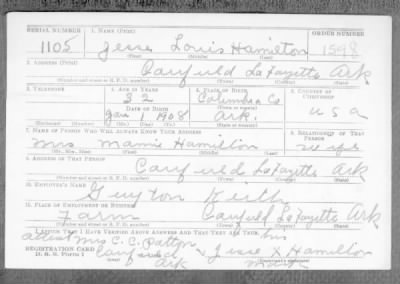 SERIAL NUMBER 1. NAME (Print) ORDER NUMBER
1105 Jesse Louis Hamilton 1598
(First) (Middle) (Last)
2. ADDRESS (Print)
Canfield LaFayette Ark
(Number and street or R. F. D. number) (Town) (County) (State)
3. TELEPHONE 4. AGE IN YEARS 5. PLACE OF BIRTH 6. COUNTRY OF CITIZENSHIP
32 Columbia Co
(Town or county)
DATE OF BIRTH
Jan 1 1908 Ark. U S A
(Exchange) (Number) (Mo.) (Day) (Yr.) (State or country)
7. NAME OF PERSON WHO WILL ALWAYS KNOW YOUR ADDRESS 8. RELATIONSHIP OF THAT PERSON
Mrs Mamie Hamilton wife
(Mr., Mrs., Miss) (First) (Middle) (Last)
9. ADDRESS OF THAT PERSON
Canfield LaFayette Ark
(Number and street or R. F. D. number) (Town) (County) (State)
10. EMPLOYER'S NAME
Guyton Keith
11. PLACE OF EMPLOYMENT OR BUSINESS
Farm Canfield LaFayette Ark
(Number and street or R. F. D. number) (Town) (County) (State)
I AFFIRM THAT I HAVE VERIFIED ABOVE ANSWERS AND THAT THEY ARE TRUE.
his
attest Mrs C. C. Patton Jesse X Hamilton
REGISTRATION CARD Canfield mark
D. S. S. Form 1 Ark (Registrant's signature)